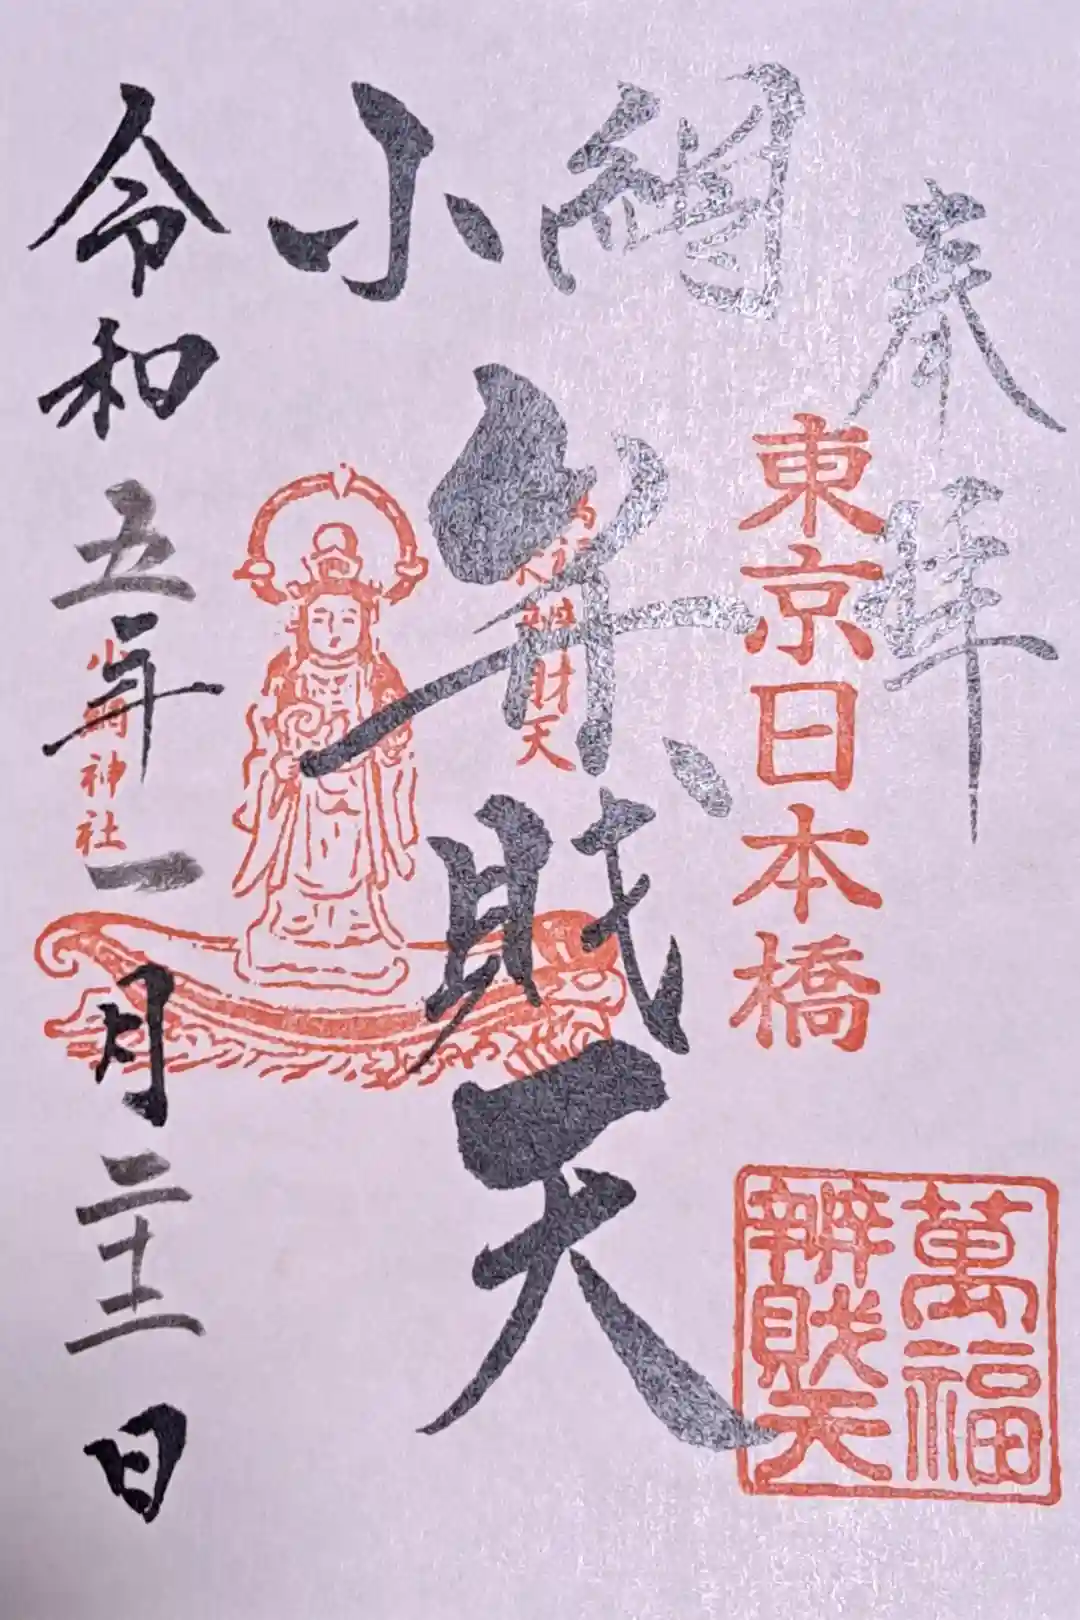 奉拝
東京日本橋
萬福
辨財天
小網
弁財天
財天
小網神社
令和五年一月二十二日